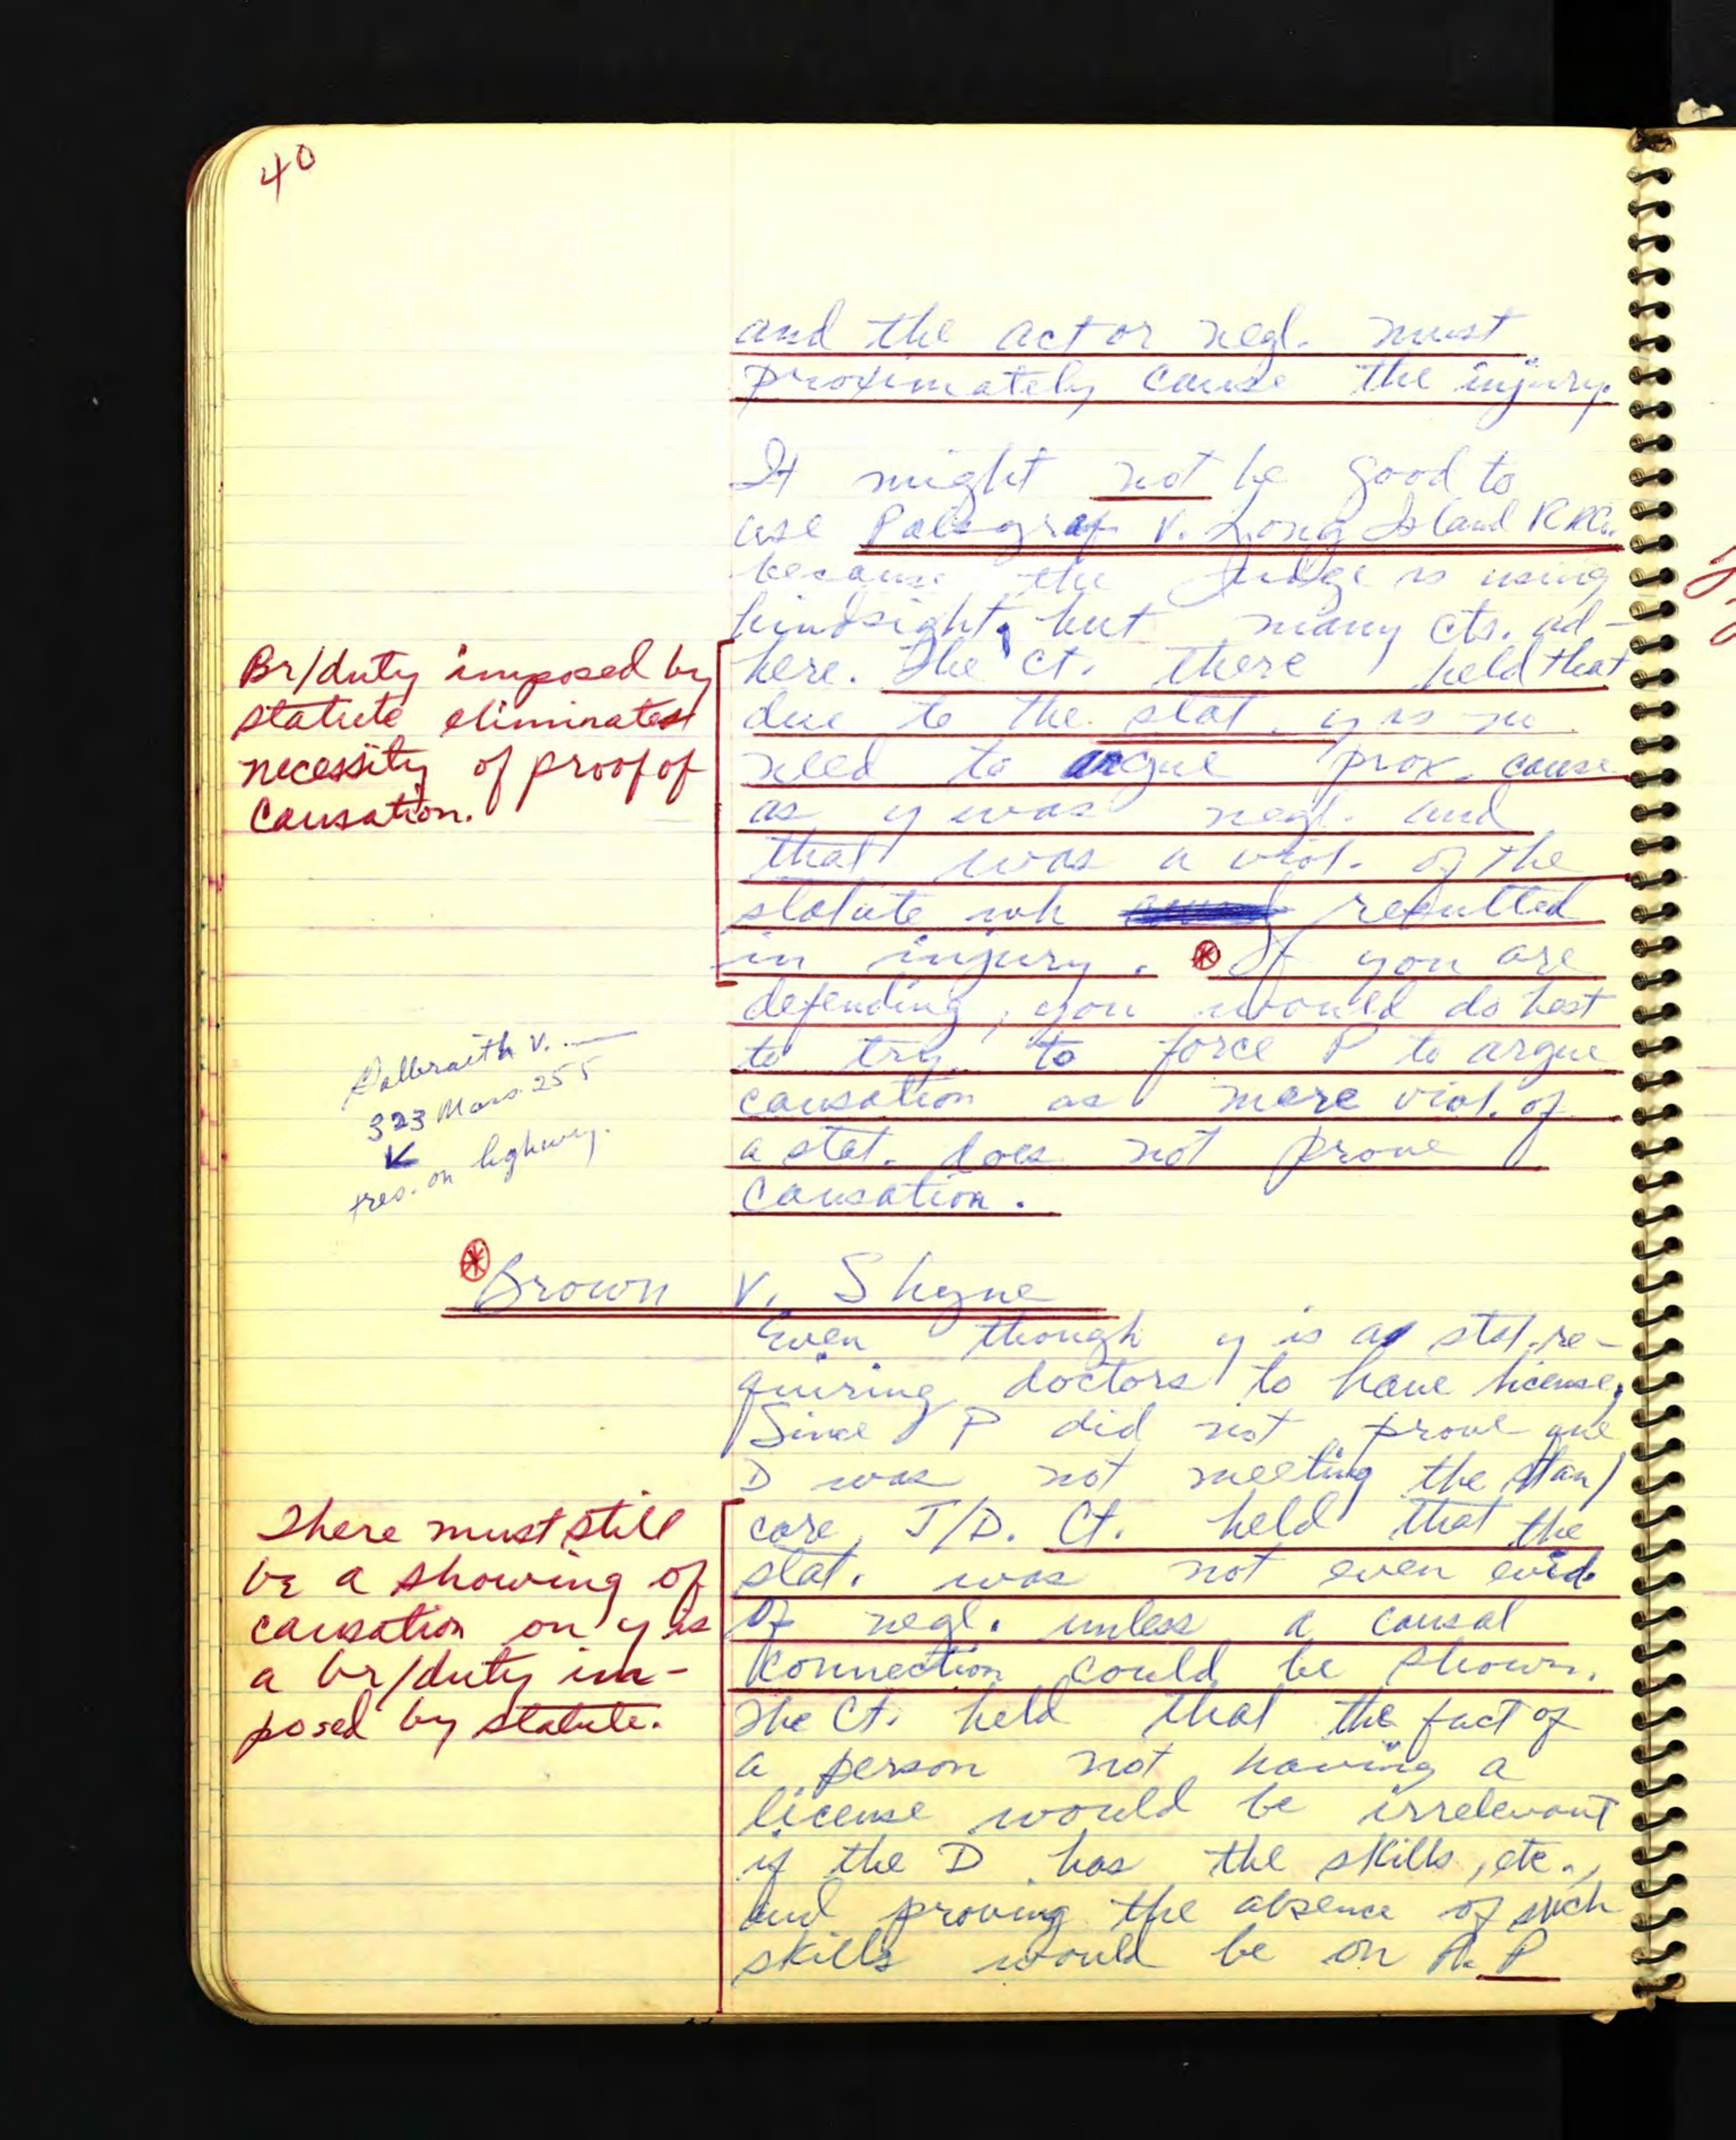 40
and the act or negl. must
proximately cause the injury.
It might not be good to
use Palsgraf v. Long Island R.R.Co.
because the Judge is using
hindsight, but many cts. ad-
here. The ct. there held that
due to the stat. y is no
need to argue prox. cause
as y was negl. and
that was a viol. of the
statute wh resulted
in injury. If you are
defending, you would do best
to try to force P to argue
causation as mere viol. of
a stat. does not prove
causation.
Br/duty imposed by
statute eliminates
necessity of proof of
causation.
Galbraith v. —
323 Mass. 255
tres. on highway.
Brown v. Shyne
Even though y is a stat. re-
quiring doctors to have license,
Since P did not prove que
D was not meeting the stan/
care, J/D. Ct. held that the
stat. was not even evid.
of negl. unless a causal
connection could be shown.
The Ct. held that the fact of
a person not having a
license would be irrelevant
if the D has the skills, etc.,
and proving the absence of such
skills would be on P
There must still
be a showing of
causation on y is
a br/duty im-
posed by statute.